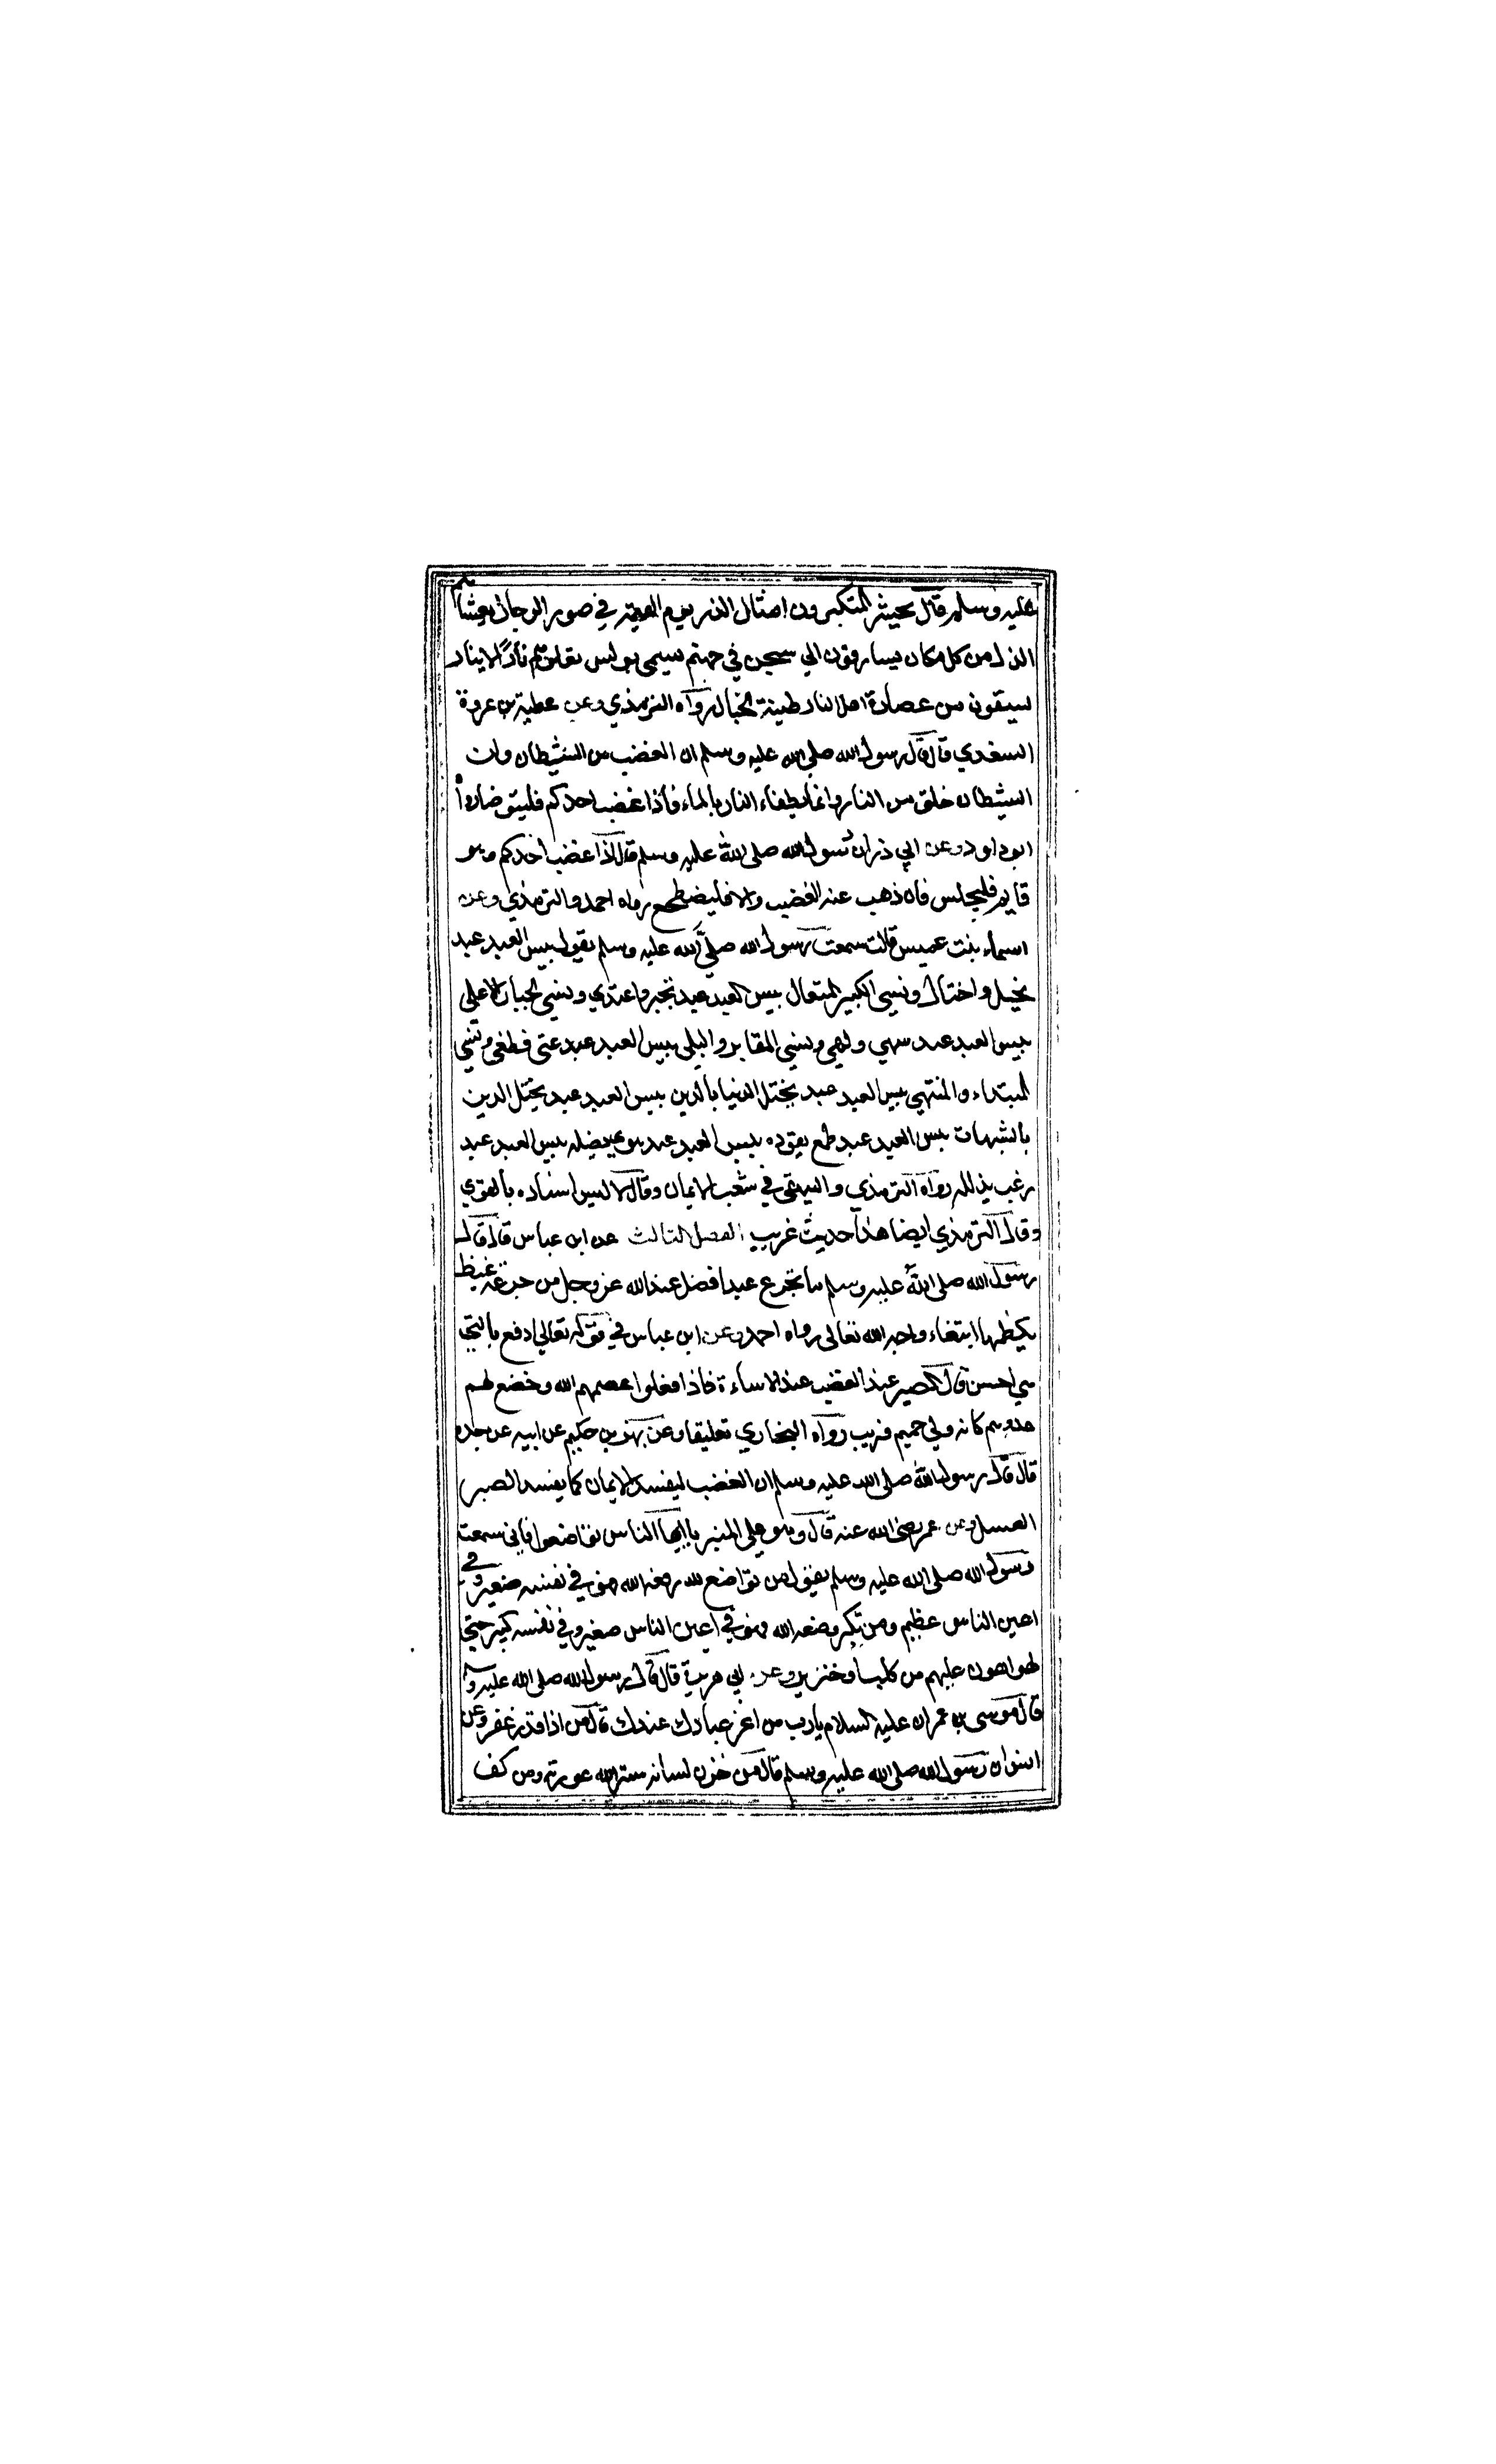 عليه وسلم قال يحشر المتكبرون امثال الذر يوم القيمة في صور الرجال يغشاهم
الذل من كل مكان يساقون الي سجن في جهنم يسمي بولس تعلوهم نار الانيار
يسقون من عصارة اهل النار طينة الخبال رواه الترمذي وعن عطية بن عروة
السعدي قال قال رسول الله صلي الله عليه وسلم ان الغضب من الشيطان وان
الشيطان خلق من النار وانما يطفاء النار بالماء فاذا غضب احدكم فليتوضا رواه
ابو داود وعن ابي ذر ان رسول الله صلي الله عليه وسلم قال اذا غضب احدكم وهو
قايم فليجلس فان ذهب عنه الغضب والا فليضطجع رواه احمد والترمذي وعن
اسماء بنت عميس قالت سمعت رسول الله صلي الله عليه وسلم يقول بيس العبد عبد
تخيل واختال ونسي الكبير المتعال بيس العبد عبد تجبر واعتدي ونسي الجبار الاعلي
بيس العبد عبد سهي ولهي ونسي المقابر والبلي بيس العبد عبد عتي وطغي ونسي
المبتداء والمنتهي بيس العبد عبد يختل الدنيا بالدين بيس العبد عبد يختل الدين
بالشبهات بيس العبد عبد طمع يقوده بيس العبد عبد هوي يضله بيس العبد عبد
رغب يذلله رواه الترمذي والبيهقي في شعب الايمان وقالا ليس اسناده بالقوي
وقال الترمذي ايضا هذا حديث غريب الفصل الثالث عن ابن عباس قال قال
رسول الله صلي الله عليه وسلم ما تجرع عبد افضل عند الله عز وجل من جرعة غيظ
يكظمها ابتغاء وجه الله تعالي رواه احمد وعن ابن عباس في قوله تعالي ادفع بالتي
هي احسن قال الصبر عند الغضب عند الاساءة فاذا فعلوا عصمهم الله وخضع لهم
عدوهم كانه ولي حميم قريب رواه البخاري تعليقا وعن بهز بن حكيم عن ابيه عن جده
قال قال رسول الله صلي الله عليه وسلم ان الغضب ليفسد الايمان كما يفسد الصبر
العسل وعن عمر رضي الله عنه قال وهو علي المنبر يا ايها الناس تواضعوا فاني سمعت
رسول الله صلي الله عليه وسلم يقول من تواضع لله رفعه الله فهو في نفسه صغير وفي
اعين الناس عظيم ومن تكبر وضعه الله فهو في اعين الناس صغير وفي نفسه كبير حتي
لهو اهون عليهم من كلب او خنزير وعن ابي هريرة قال قال رسول الله صلي الله عليه وسلم
قال موسي بن عمران عليه السلام يا رب من اعز عبادك عندك قال من اذا قدر غفر وعن
انس ان رسول الله صلي الله عليه وسلم قال من خزن لسانه ستر الله عورته ومن كف